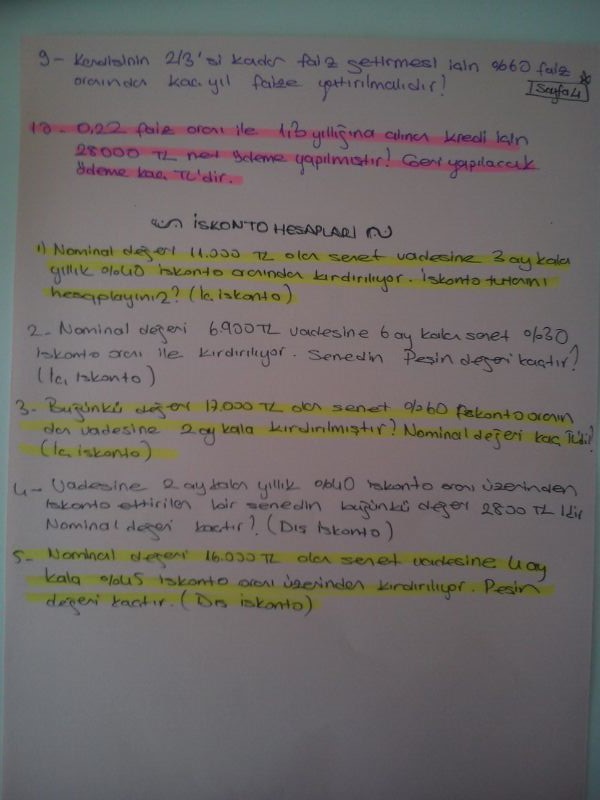 9- Kendisinin 2/3'si kadar faiz getirmesi için %60 faiz
oranından kaç yıl faize yatırılmalıdır!
Sayfa4
10- 0,22 faiz oranı ile 1,3 yıllığına alınan kredi için
28000 TL net ödeme yapılmıştır! Geri yapılacak
ödeme kaç TL'dir.
İSKONTO HESAPLARI
1) Nominal değeri 11.000 TL olan senet vadesine 3 ay kala
yıllık %40 iskonto oranından kırdırılıyor. İskonto tutarını
hesaplayınız? (İç iskonto)
2- Nominal değeri 6900 TL vadesine 6 ay kala senet %30
iskonto oranı ile kırdırılıyor. Senedin Peşin değeri kaçtır?
(İç İskonto)
3- Bugünkü değer 17.000 TL olan senet %60 iskonto oranın
dan vadesine 2 ay kala kırdırılmıştır? Nominal değeri kaç TL'dir?
(İç iskonto)
4- Vadesine 2 ay kalan yıllık %40 iskonto oranı üzerinden
iskonto ettirilen bir senedin bugünkü değer 2800 TL'dir
Nominal değeri kaçtır? (Dış İskonto)
5- Nominal değeri 16.000 TL olan senet vadesine 4 ay
kala %45 iskonto oranı üzerinden kırdırılıyor. Peşin
değeri kaçtır. (Dış iskonto)